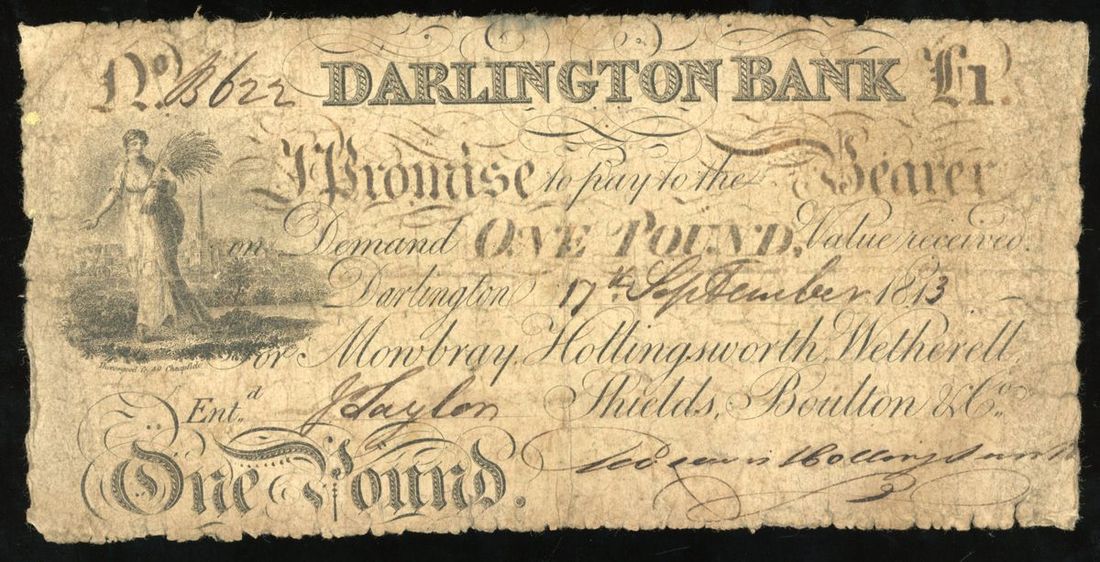 No. B622 DARLINGTON BANK £1.
I Promise to pay to the Bearer
on Demand ONE POUND, Value received.
Darlington 17th September 1813
For Mowbray, Hollingsworth, Wetherell,
Shields, Boulton & Co.
Ent.d J Taylor
One Pound.
Hollingsworth